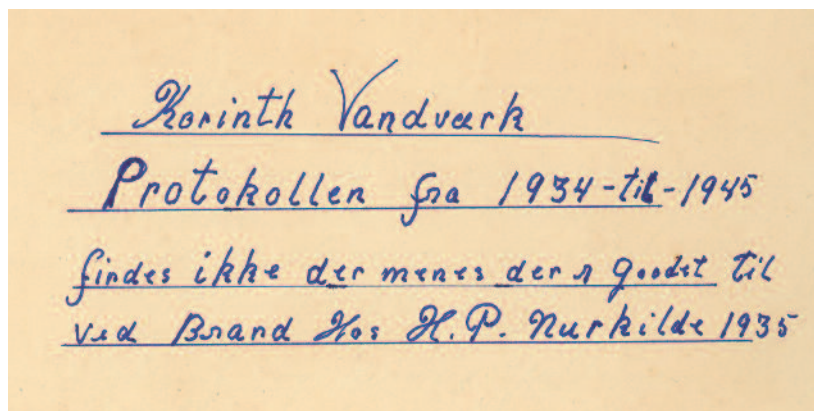 Korinth Vandværk
Protokollen fra 1934-til-1945
findes ikke der menes der goodst til
ved Brand Hos H.P. Nurkilde 1935